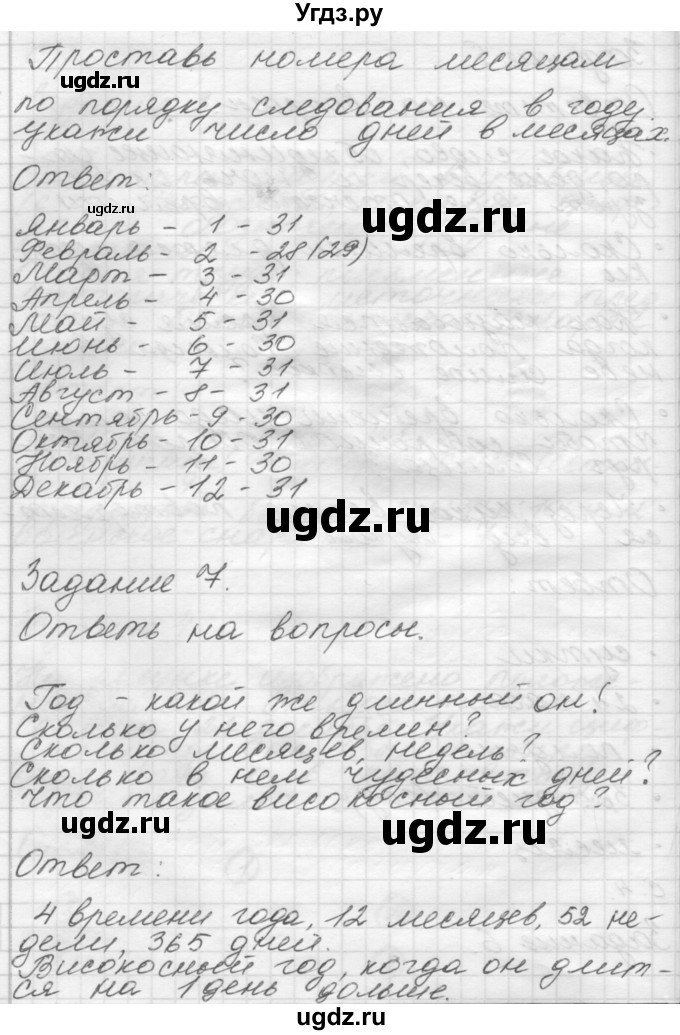 Угдз.ру
Проставь номера месяцам
ugdz.ru
по порядку следования в году,
укажи число дней в месяцах.
Ответ:
ugdz.ru
Январь - 1 - 31
Февраль - 2 - 28 (29)
Март - 3 - 31
Апрель - 4 - 30
Май - 5 - 31
Июнь - 6 - 30
Июль - 7 - 31
Август - 8 - 31
Сентябрь - 9 - 30
Октябрь - 10 - 31
Ноябрь - 11 - 30
Декабрь - 12 - 31
ugdz.ru
Задание 7.
Ответь на вопросы.
Год - какой же длинный он!
Сколько у него времен?
Сколько месяцев, недель?
Сколько в нем чудесных дней?
Что такое високосный год?
ugdz.ru
ugdz.ru
Ответ:
4 времени года, 12 месяцев, 52 не-
дели, 365 дней.
Високосный год, когда он длит-
ся на 1 день дольше.
ugdz.ru